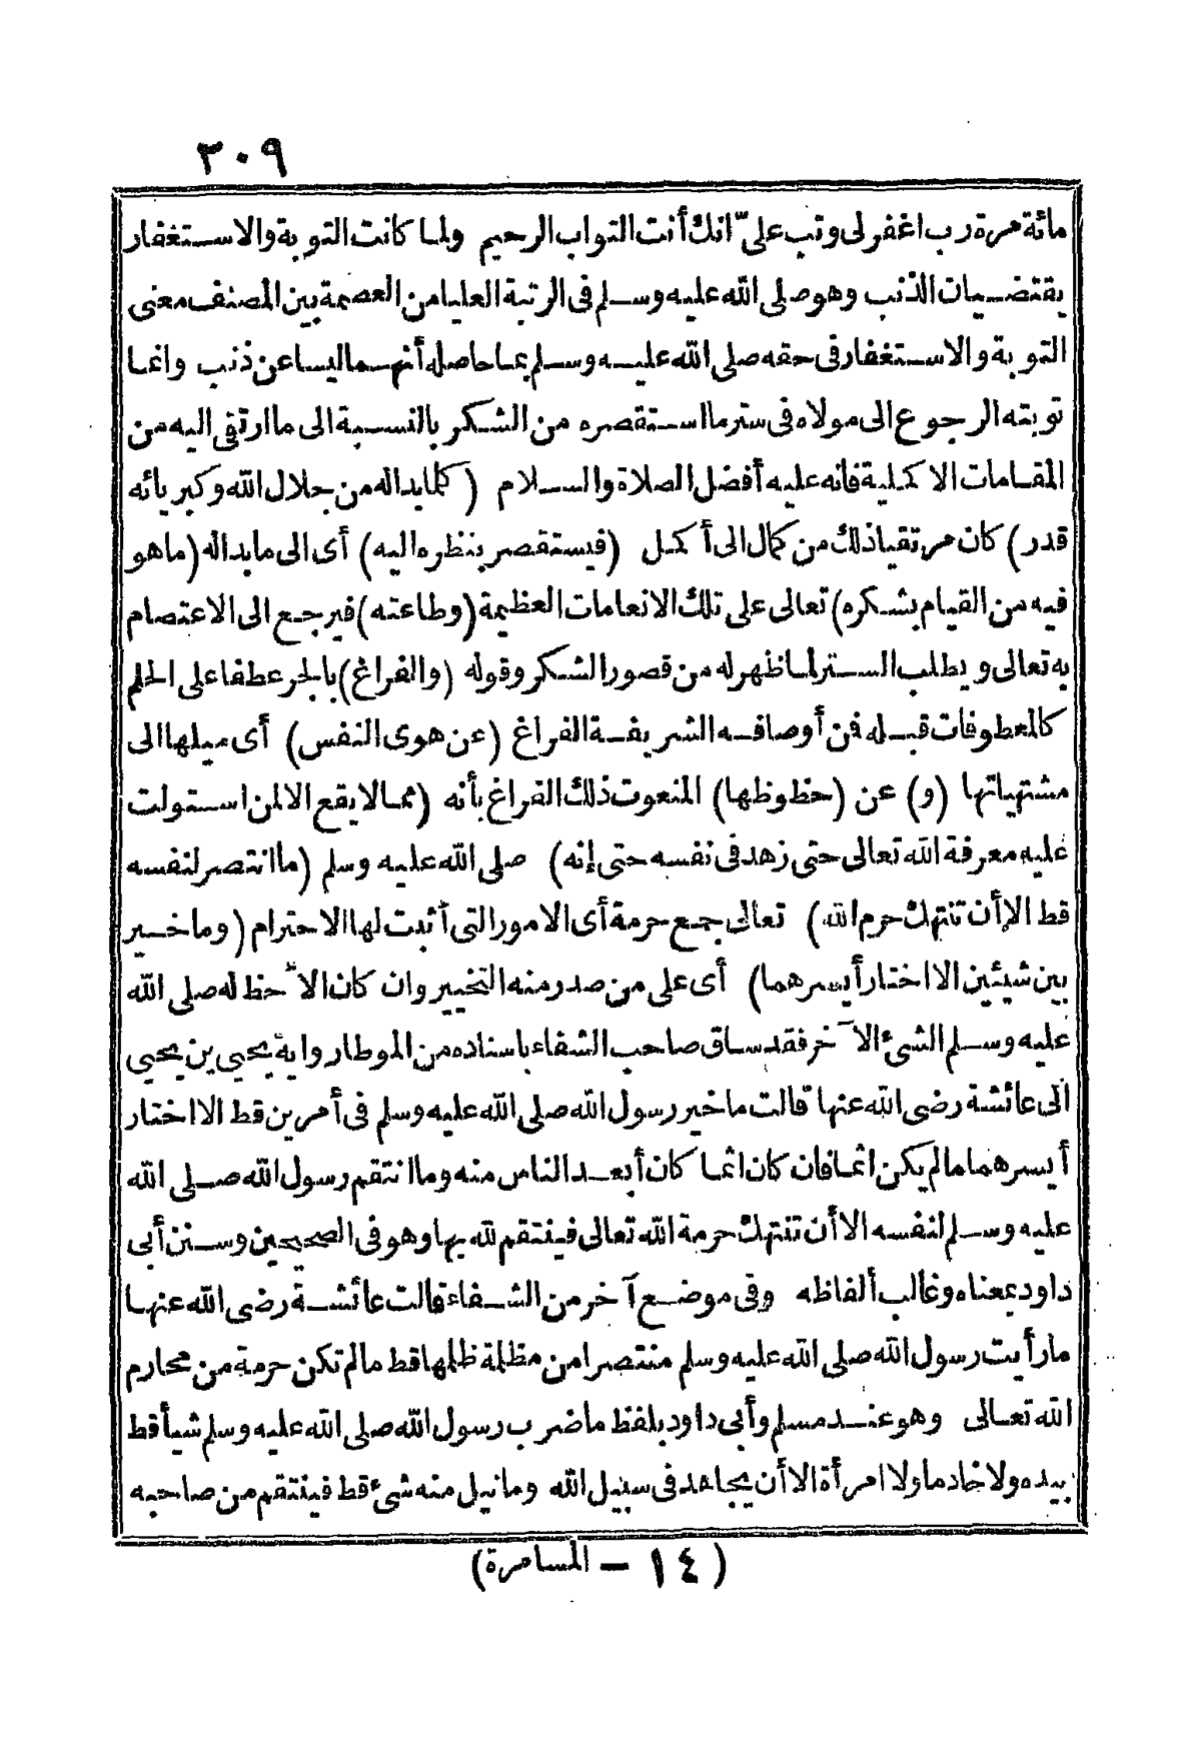 ٣٠٩
مائة مرة رب اغفر لى وتب علىّ انك أنت التواب الرحيم ولما كانت التوبة والاستغفار
يقتضيان الذنب وهو صلى الله عليه وسلم فى الرتبة العليا من العصمة بين المصنف معنى
التوبة والاستغفار فى حقه صلى الله عليه وسلم بما حاصله أنهما ليسا عن ذنب وانما
توبته الرجوع الى مولاه فى ستر ما استقصره من الشكر بالنسبة الى ما ارتقى اليه من
المقامات الاكملية فانه عليه أفضل الصلاة والسلام (كلما بداله من جلال الله وكبريائه
قدر) كان مرتقيا ذلك من كمال الى أكمل (فيستقصر بنظره اليه) أى الى ما بداله (ما هو
فيه من القيام بشكره) تعالى على تلك الانعامات العظيمة (وطاعته) فيرجع الى الاعتصام
به تعالى ويطلب الستر لما ظهر له من قصور الشكر وقوله (والفراغ) بالجر عطفا على الحلم
كالمعطوفات قبله فمن أوصافه الشريفة الفراغ (عن هوى النفس) أى ميلها الى
مشتهياتها (و) عن (حظوظها) المنعوت ذلك الفراغ بأنه (مما لا يقع الا لمن استولت
عليه معرفة الله تعالى حتى زهد فى نفسه حتى إنه) صلى الله عليه وسلم (ما انتصر لنفسه
قط الا أن تنتهك حرم الله) تعالى جمع حرمة أى الامور التى أثبت لها الاحترام (وما خير
بين شيئين الا اختار أيسرهما) أى على من صدر منه التخيير وان كان الاحظ له صلى الله
عليه وسلم الشئ الآخر فقد ساق صاحب الشفاء باسناده من الموطا رواية يحيى بن يحيى
الى عائشة رضى الله عنها قالت ما خير رسول الله صلى الله عليه وسلم فى أمرين قط الا اختار
أيسرهما ما لم يكن اثما فان كان اثما كان أبعد الناس منه وما انتقم رسول الله صلى الله
عليه وسلم لنفسه الا أن تنتهك حرمة الله تعالى فينتقم لله بها وهو فى الصحيحين وسنن أبى
داود بمعناه وغالب ألفاظه وفى موضع آخر من الشفاء قالت عائشة رضى الله عنها
ما رأيت رسول الله صلى الله عليه وسلم منتصرا من مظلمة ظلمها قط ما لم تكن حرمة من محارم
الله تعالى وهو عند مسلم وأبى داود بلفظ ما ضرب رسول الله صلى الله عليه وسلم شيأ قط
بيده ولا خادما ولا امرأة الا أن يجاهد فى سبيل الله وما نيل منه شئ قط فينتقم من صاحبه
(١٤ – المسامرة)